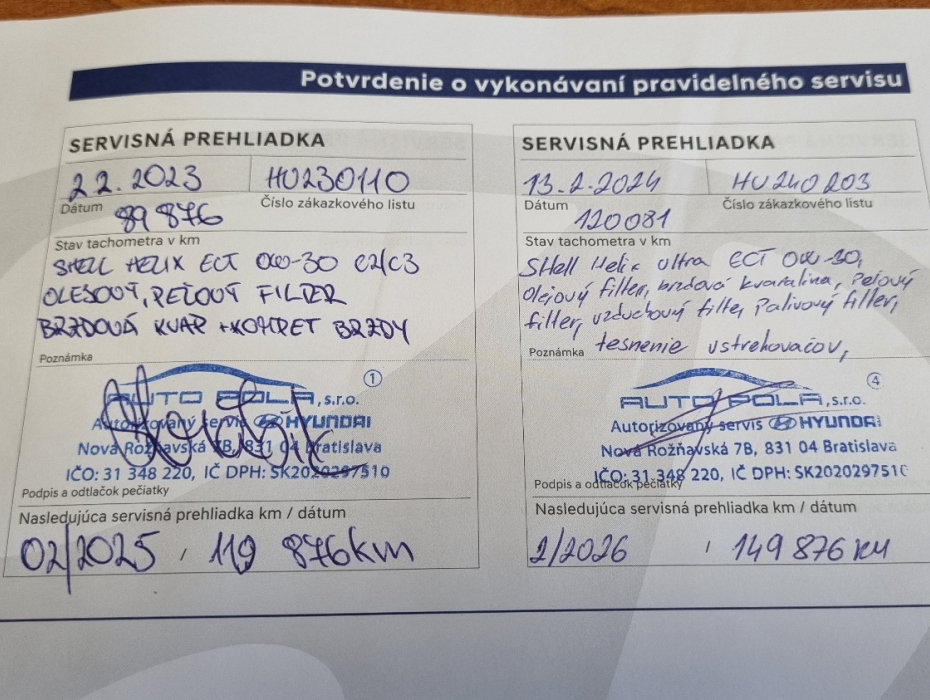 Potvrdenie o vykonávaní pravidelného servisu
SERVISNÁ PREHLIADKA
2.2.2023 HU230110
Dátum Číslo zákazkového listu
89 876
Stav tachometra v km
SHELL HELIX ECT 0W-30 C2/C3
OLEJOVÝ, PEĽOVÝ FILTER
BRZDOVÁ KVAP +KONTRET BRZDY
Poznámka
1
AUTO POLA, s.r.o.
Autorizovaný servis HYUNDAI
Nová Rožňavská 7B, 831 04 Bratislava
IČO: 31 348 220, IČ DPH: SK2020297510
Podpis a odtlačok pečiatky
Nasledujúca servisná prehliadka km / dátum
02/2025 / 119 876km
SERVISNÁ PREHLIADKA
13.2.2024 HU240203
Dátum Číslo zákazkového listu
120081
Stav tachometra v km
Shell Helix Ultra ECT 0W-30,
Olejový filter, brzdová kvapalina, Peľový
filter, vzduchový filter, Palivový filter,
Poznámka tesnenie vstrekovačov,
4
AUTO POLA, s.r.o.
Autorizovaný servis HYUNDAI
Nová Rožňavská 7B, 831 04 Bratislava
IČO: 31 348 220, IČ DPH: SK202029751
Podpis a odtlačok pečiatky
Nasledujúca servisná prehliadka km / dátum
2/2026 / 149 876 km